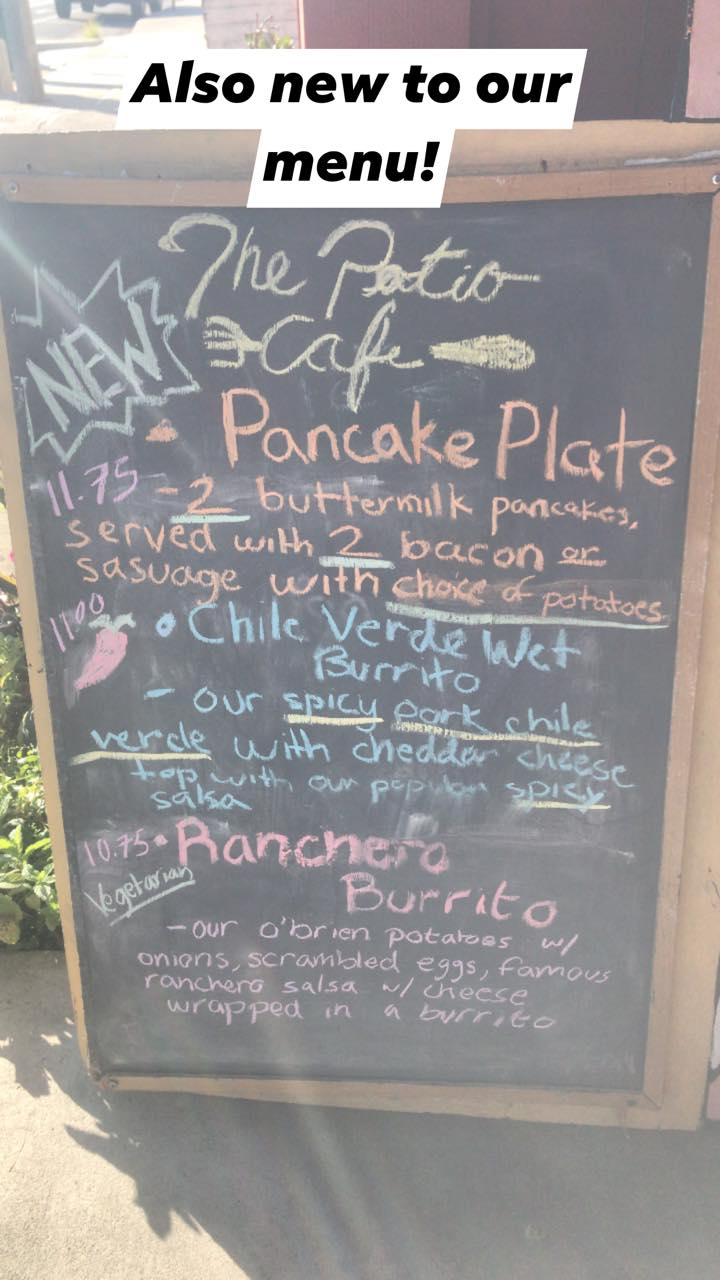 Also new to our
menu!
The Patio
Cafe
NEW
• Pancake Plate
11.75 - 2 buttermilk pancakes,
served with 2 bacon or
sasuage with choice of potatoes
11.00 • Chile Verde Wet
Burrito
- our spicy pork chile
verde with cheddar cheese
top with our popular spicy
salsa
10.75 • Ranchero
Vegetarian Burrito
- our o'brien potatoes w/
onions, scrambled eggs, famous
ranchero salsa w/ cheese
wrapped in a burrito